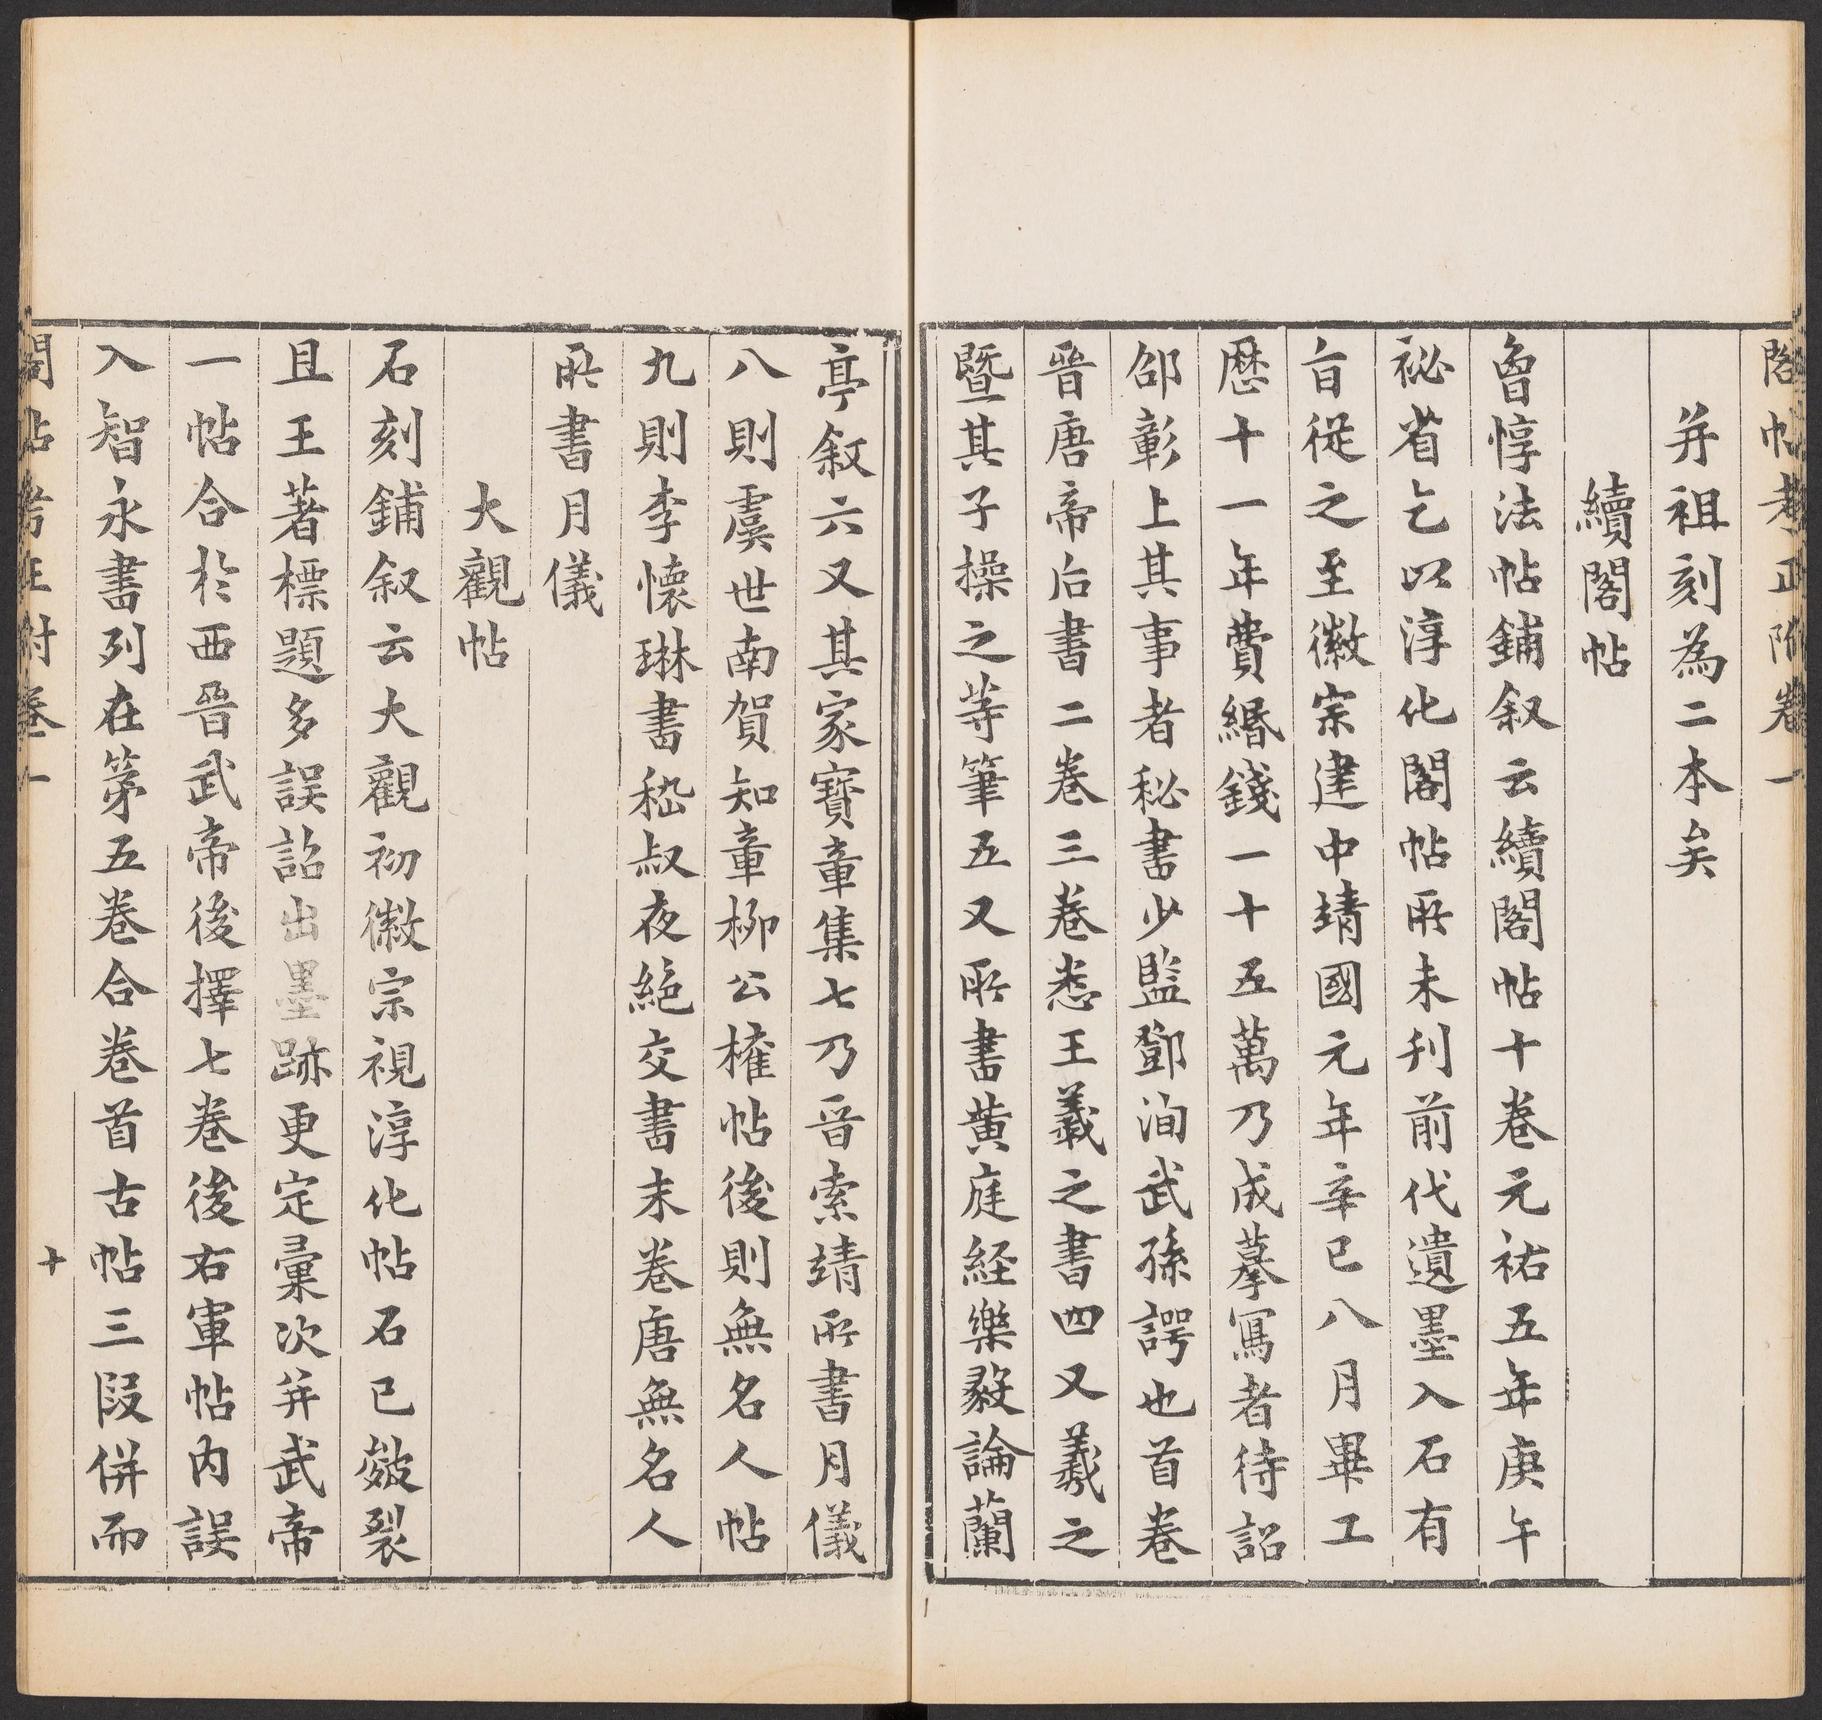 閣帖考正附卷一
并祖刻為二本矣
續閣帖
曾惇法帖鋪叙云續閣帖十卷元祐五年庚午
祕省乞以淳化閣帖所未刊前代遺墨入石有
旨從之至徽宗建中靖國元年辛巳八月畢工
歷十一年費緡錢一十五萬乃成摹寫者待詔
邵彰上其事者秘書少監鄧洵武孫諤也首卷
晉唐帝后書二卷三卷悉王羲之書四又羲之
暨其子操之等筆五又所書黃庭經樂毅論蘭
亭叙六又其家寶章集七乃晉索靖所書月儀
八則虞世南賀知章柳公權帖後則無名人帖
九則李懷琳書嵇叔夜絕交書末卷唐無名人
所書月儀
大觀帖
石刻鋪叙云大觀初徽宗視淳化帖石已皴裂
且王著標題多誤詔出墨跡更定彙次并武帝
一帖合於西晉武帝後擇七卷後右軍帖內誤
入智永書列在第五卷合卷首古帖三段併而
閣帖考正附卷一
十